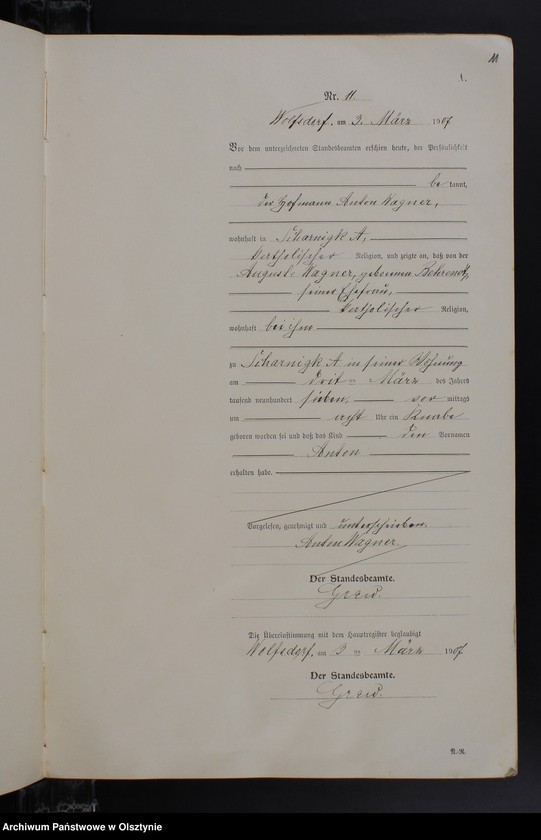 11
A.
Nr. 11
Wolfsdorf, am 3. März 1907
Vor dem unterzeichneten Standesbeamten erschien heute, der Persönlichkeit
nach
be kannt,
der Hofmann Anton Wagner,
wohnhaft in Scharnigk A,
katholischer Religion, und zeigte an, daß von der
Auguste Wagner, geborenen Behrendt,
seiner Ehefrau,
katholischer Religion,
wohnhaft bei ihm
zu Scharnigk A in seiner Wohnung
am drit ten März des Jahres
tausend neunhundert sieben, vor mittags
um acht Uhr ein Knabe
geboren worden sei und daß das Kind den Vornamen
Anton
erhalten habe.
Vorgelesen, genehmigt und unterschrieben.
Anton Wagner.
Der Standesbeamte.
Die Übereinstimmung mit dem Hauptregister beglaubigt
Wolfsdorf, am 3 ten März 1907
Der Standesbeamte.
N.-R.
Archiwum Państwowe w Olsztynie